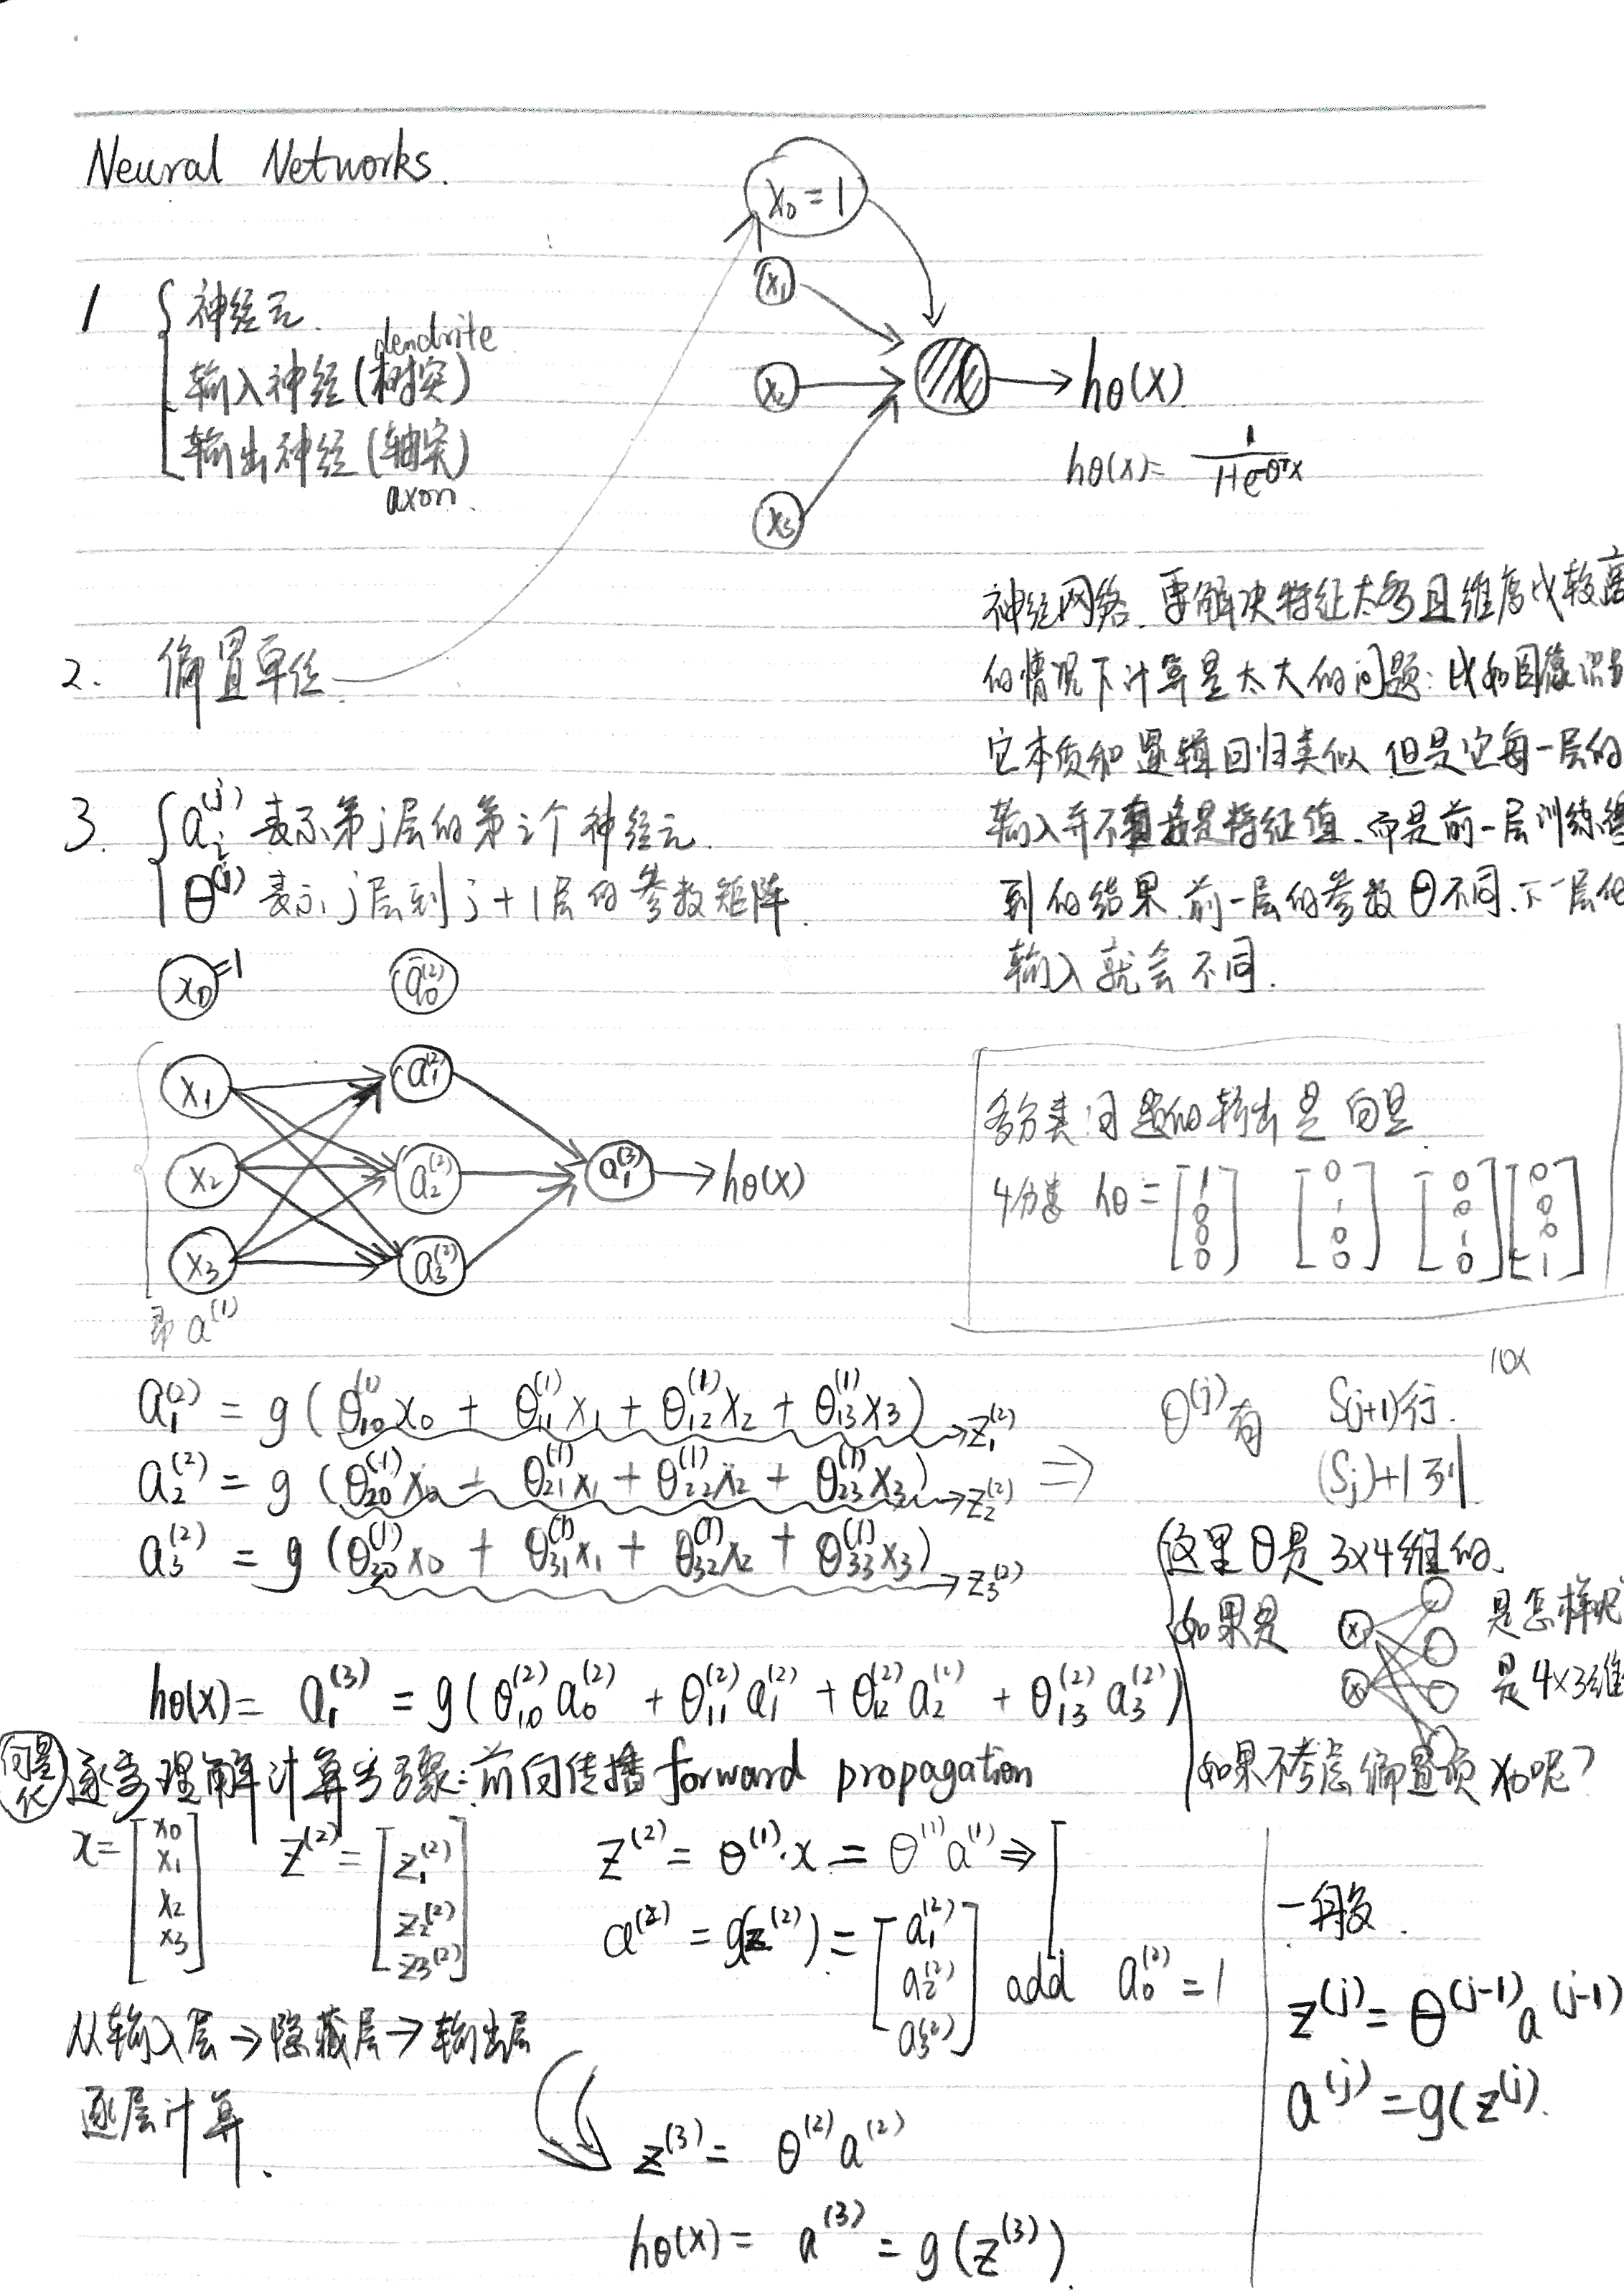 Neural Networks.
x₀ = 1
x₁
x₂
x₃
hθ(x)
hθ(x) = 1/(1+e^-θᵀx)
1
神经元.
dendrite
输入神经(树突)
输出神经(轴突)
axon.
2. 偏置单位
神经网络. 要解决特征太多且维度比较高
的情况下计算量太大的问题: 比如图像识别
它本质和逻辑回归类似 但是它每一层的
输入并不直接是特征值, 而是前一层训练得
到的结果. 前一层的参数θ不同, 下一层的
输入就会不同.
3. aᵢ^(j) 表示第j层的第i个神经元.
θ^(j) 表示j层到j+1层的参数矩阵.
x₀=1 a₀^(2)
x₁ a₁^(2)
x₂ a₂^(2) a₁^(3) → hθ(x)
x₃ a₃^(2)
即 a^(1)
多分类问题的输出是向量.
4分类 hθ = [1 0 0 0] [0 1 0 0] [0 0 1 0] [0 0 0 1]
10x
a₁^(2) = g(θ₁₀^(1)x₀ + θ₁₁^(1)x₁ + θ₁₂^(1)x₂ + θ₁₃^(1)x₃) → z₁^(2)
a₂^(2) = g(θ₂₀^(1)x₀ + θ₂₁^(1)x₁ + θ₂₂^(1)x₂ + θ₂₃^(1)x₃) → z₂^(2) ⇒
a₃^(2) = g(θ₃₀^(1)x₀ + θ₃₁^(1)x₁ + θ₃₂^(1)x₂ + θ₃₃^(1)x₃) → z₃^(2)
θ^(j)有 S(j+1)行.
(Sj)+1列
这里θ是3x4维的.
如果是 x₁ 是怎样呢
x 是4x3维
如果不考虑偏置项x₀呢?
hθ(x) = a₁^(3) = g(θ₁₀^(2)a₀^(2) + θ₁₁^(2)a₁^(2) + θ₁₂^(2)a₂^(2) + θ₁₃^(2)a₃^(2))
向量化
逐步理解计算步骤: 前向传播 forward propagation
x = [x₀ x₁ x₂ x₃] z^(2) = [z₁^(2) z₂^(2) z₃^(2)]
z^(2) = θ^(1)·x = θ^(1)a^(1) ⇒
a^(2) = g(z^(2)) = [a₁^(2) a₂^(2) a₃^(2)] add a₀^(2) = 1
从输入层→隐藏层→输出层
逐层计算.
z^(3) = θ^(2)a^(2)
hθ(x) = a^(3) = g(z^(3)).
一般.
z^(j) = θ^(j-1)a^(j-1)
a^(j) = g(z^(j).